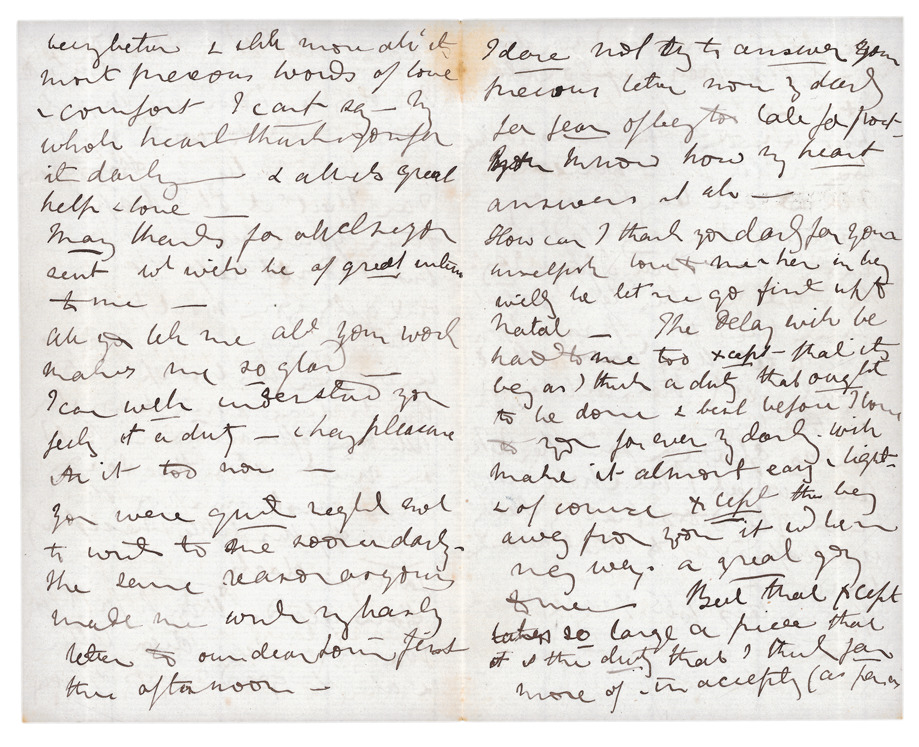 being better & tell more abt its
most precious words of love
& comfort I cant say - My
whole heart thanks you for
it darling & all its great
help & love
Many thanks for all else you
sent wh will be of great interest
to me
all you tell me abt your work
makes me so glad
I can well understand you
feeling it a duty - & having pleasure
in it too now
You were quite right not
to write to me sooner darling -
the same reason as yours
made me write my hasty
letter to our dear first
this afternoon -
I dare not try to answer your
precious letter now my darling
for fear of being too late for post -
You know how my heart
answers it all
How can I thank you darling for your
unselfish love to me her in being
willing to let me go first up to
Natal - The delay will be
hard to me too xcept - that its
being as I think a duty that ought
to be done & best before I come
to you for ever my darling. will
make it almost easy & light -
& of course xcept this being
away from you it wd be in
many ways a great joy
to me But that xcept
takes so large a piece that
it is the duty that I think far
more of in accepting (as far as